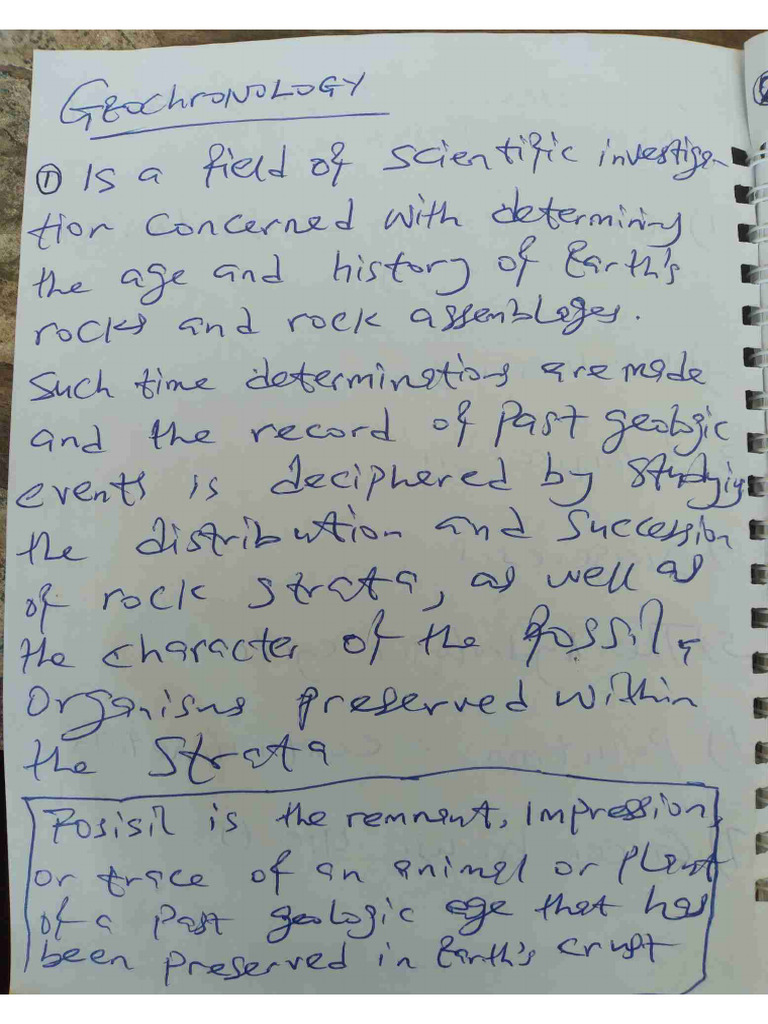 GEOCHRONOLOGY
① Is a field of scientific investiga-
tion concerned with determining
the age and history of Earth's
rocks and rock assemblages.
Such time determinations are made
and the record of past geologic
events is deciphered by studying
the distribution and succession
of rock strata, as well as
the character of the fossil,
Organisms preserved within
the strata
Fosisil is the remnant, impression,
or trace of an animal or plant
of a past geologic age that has
been preserved in Earth's crust